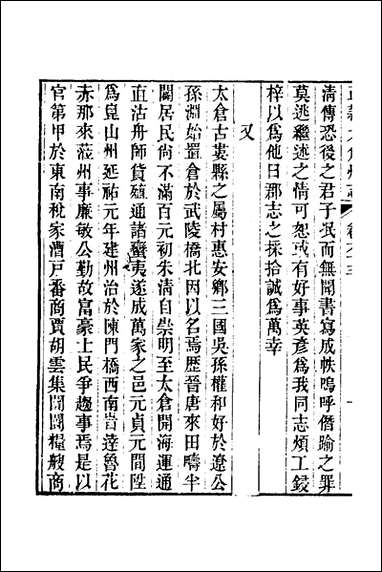 清傳恐後之君子泯而無聞書寫成帙嗚呼僭踰之罪
莫逃繼述之情可恕或有好事英彥爲我同志煩工鋟
梓以爲他日郡志之採拾誠爲萬幸
又
太倉古婁縣之屬村惠安鄉三國吳孫權和好於遼公
孫淵始置倉於武陵橋北因以名焉歷晉唐來田疇半
闢居民尚不滿百元初朱淸自崇明至太倉開海運通
直沽舟師貨殖通諸蠻夷遂成萬家之邑元貞元間陞
爲崑山州延祐元年建州治於陳門橋西南首達魯花
赤那來蒞州事廉敏公勤故富豪士民爭趨事焉是以
官第甲於東南稅家漕戶番商賈胡雲集闤闠糧艘商